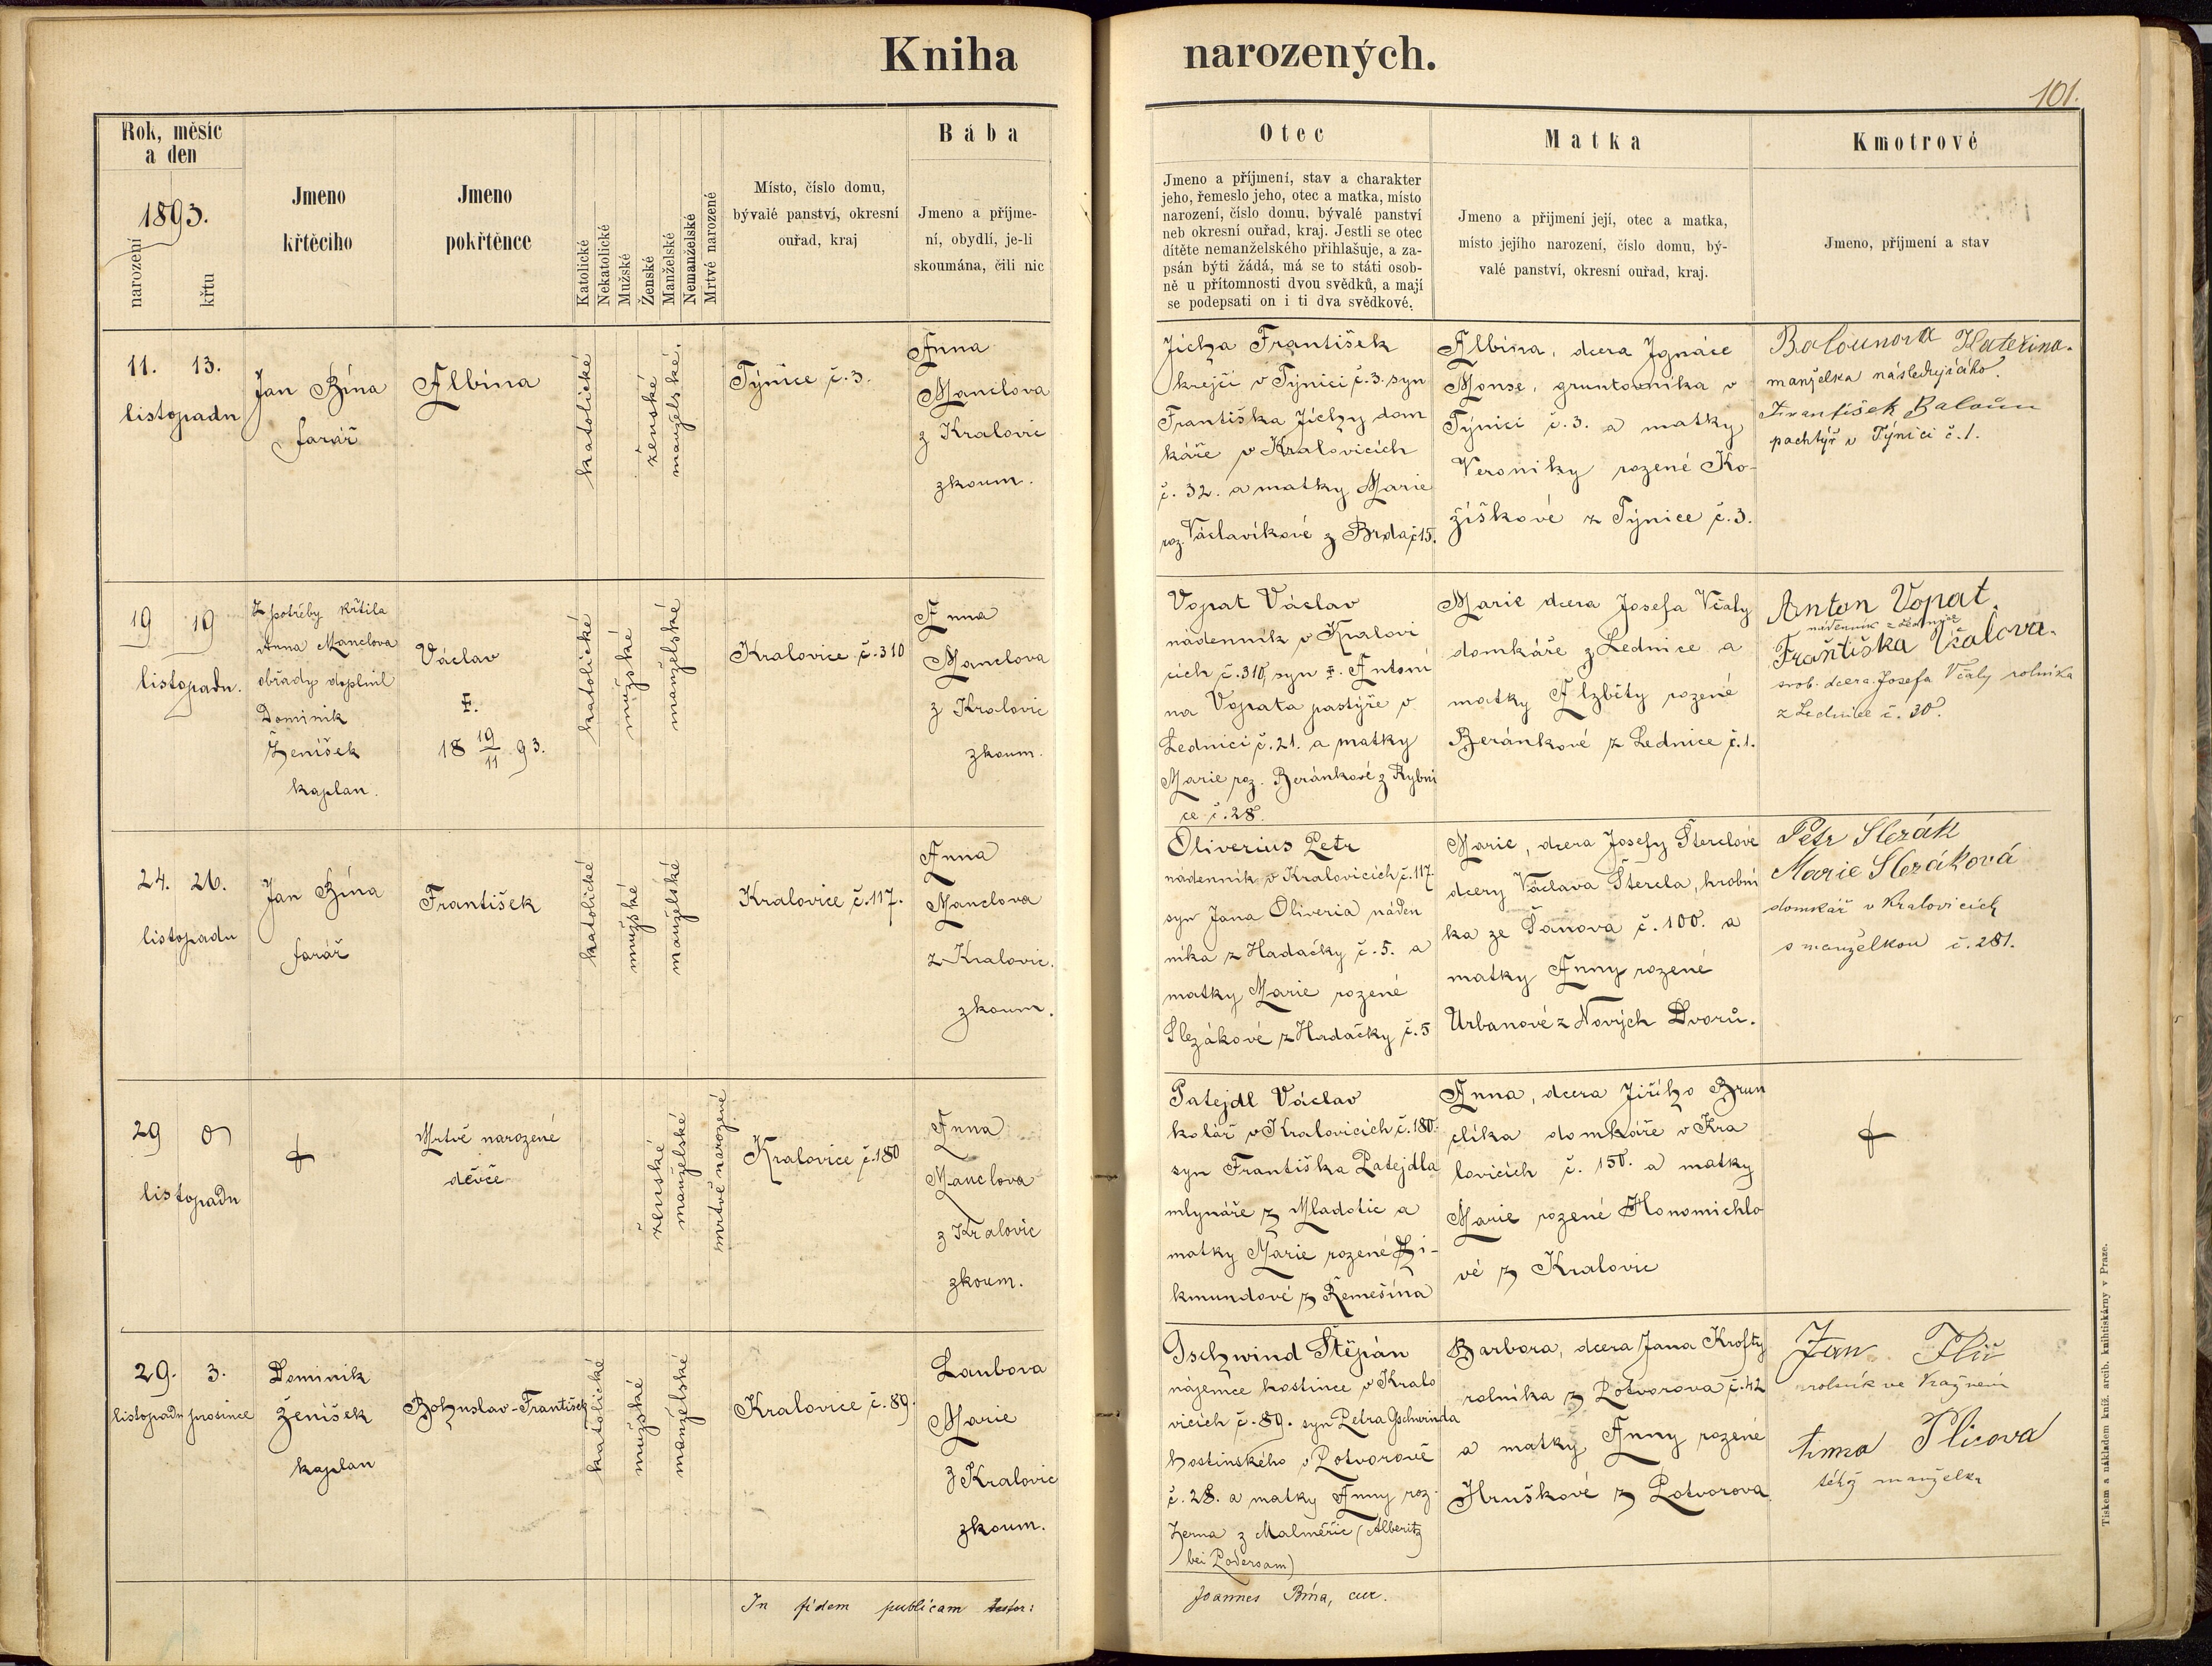 Kniha narozených.
101.
Rok, měsíc
a den
1893.
narození
křtu
Jmeno
křtěcího
Jmeno
pokřtěnce
Katolické
Nekatolické
Mužské
Ženské
Manželské
Nemanželské
Mrtvé narozené
Místo, číslo domu,
bývalé panství, okresní
ouřad, kraj
Bába
Jmeno a příjme-
ní, obydlí, je-li
skoumána, čili nic
Otec
Jmeno a příjmení, stav a charakter
jeho, řemeslo jeho, otec a matka, místo
narození, číslo domu, bývalé panství
neb okresní ouřad, kraj. Jestli se otec
dítěte nemanželského přihlašuje, a za-
psán býti žádá, má se to státi osob-
ně u přítomnosti dvou svědků, a mají
se podepsati on i ti dva svědkové.
Matka
Jmeno a přijmení její, otec a matka,
místo jejího narození, číslo domu, bý-
valé panství, okresní ouřad, kraj.
Kmotrové
Jmeno, příjmení a stav
11. 13.
listopadu
Jan Bína
farář
Albina
katolické
ženské
manželské.
Týnice č. 3.
Anna
Manclova
z Kralovic
zkoum.
Jícha František
krejčí v Týnici č. 3. syn
Františka Jíchy dom
káře v Kralovicích
č. 32. a matky Marie
roz. Václavíkové z Brda č 15.
Albina, dcera Ignáce
Monse, gruntovníka v
Týnici č. 3. a matky
Veroniky rozené Ko-
žíškové z Týnice č. 3.
Balounova Kateřina.
manželka následujícího.
František Baloun
pachtýř v Týnici č. 1.
19 19
listopadu.
Z potřeby křtila
Anna Manclova
obřady doplnil
Dominik
Ženíšek
kaplan.
Václav
‡.
18 19/11 93.
katolické
mužské
manželské
Kralovice č. 310
Anna
Manclova
z Kralovic
zkoum.
Vopat Václav
nádenník v Kralovi
cích č. 310, syn ‡. Antoní
na Vopata pastýře v
Lednici č. 21. a matky
Marie roz. Beránkové z Rybni
ce č. 28.
Marie dcera Josefa Včaly
domkáře z Lednice a
matky Alžběty rozené
Beránkové z Lednice č. 1.
Anton Vopat
nádenník z Lednice
Františka Včalova.
svob. dcera Josefa Včaly rolníka
z Lednice č. 30.
24. 26.
listopadu
Jan Bína
farář
František
katolické
mužské
manželské
Kralovice č. 117.
Anna
Manclova
z Kralovic.
zkoum.
Oliverius Petr
nádenník v Kralovicích č. 117.
syn Jana Oliveria náden
níka z Hadačky č. 5. a
matky Marie rozené
Slezákové z Hadačky č. 5
Marie, dcera Josefy Šterclové
dcery Václava Štercla, hrobní
ka ze Šanova č. 100. a
matky Anny rozené
Urbanové z Nových Dvorů.
Petr Slezák
Marie Slezáková
domkář v Kralovicích
s manželkou č. 281.
29 0
listopadu
†
Mrtvě narozené
děvče
ženské
manželské
mrtvě narozené
Kralovice č. 180
Anna
Manclova
z Kralovic
zkoum.
Patejdl Václav
kolář v Kralovicích č. 180.
syn Františka Patejdla
mlynáře z Mladotic a
matky Marie rozené Zi-
kmundové z Řemešína
Anna, dcera Jiřího Brun
clíka domkáře v Kra
lovicích č. 150. a matky
Marie rozené Honomichlo
vé z Kralovic
†
29. 3.
listopadu prosince
Dominik
Ženíšek
kaplan
Bohuslav-František
katolické
mužské
manželské
Kralovice č. 89.
Laubova
Marie
z Kralovic
zkoum.
Gschwind Štěpán
nájemce hostince v Kralo
vicích č. 89. syn Petra Gschwinda
hostinského v Potvorově
č. 28. a matky Anny roz.
Zerna z Malměřic (Alberitz
bei Podersam)
Barbora, dcera Jana Krofty
rolníka z Potvorova č. 42
a matky Anny rozené
Hruškové z Potvorova.
Jan Plic
rolník ve
Anna Plicova
téhož manželka
In fidem publicam testor:
Joannes Bína, cur.
Tiskem a nákladem kníž. arcib. knihtiskárny v Praze.